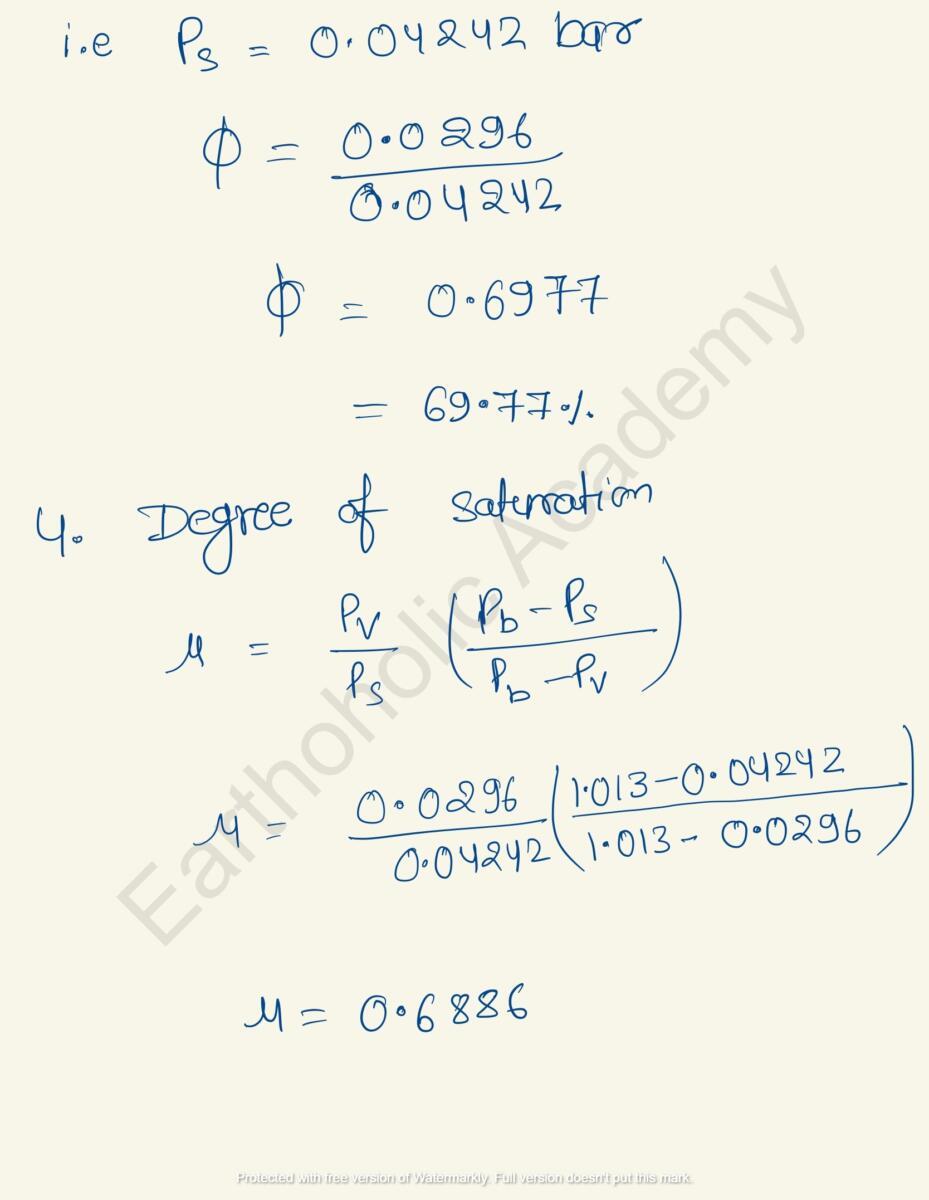 i.e Ps = 0.04242 bar
ϕ = 0.0296
0.04242
ϕ = 0.6977
= 69.77%
4. Degree of saturation
μ = Pv/Ps (Pb - Ps / Pb - Pv)
μ = 0.0296/0.04242 (1.013 - 0.04242 / 1.013 - 0.0296)
μ = 0.6886
Earthoholic Academy
Protected with free version of Watermarkly. Full version doesn't put this mark.